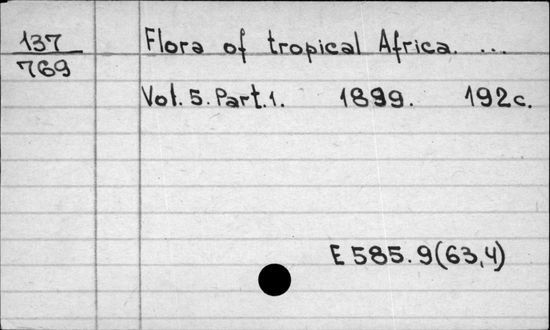 137
769
Flora of tropical Africa. ...
Vol. 5. Part. 1. 1899. 192c.
E 585.9(63,4)